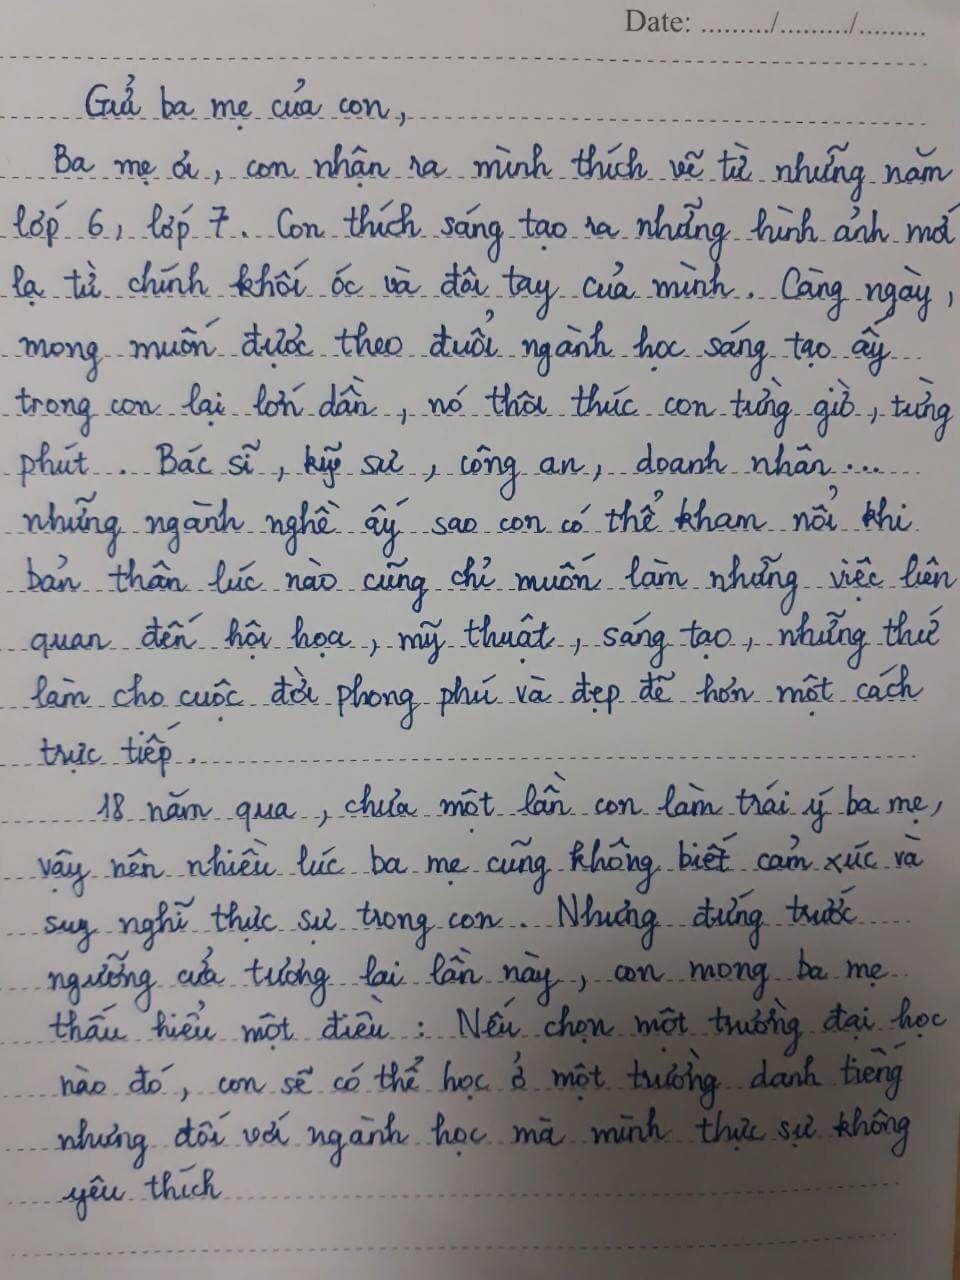 Date: ........./........./.........
Gửi ba mẹ của con,
Ba mẹ ơi, con nhận ra mình thích vẽ từ những năm
lớp 6, lớp 7. Con thích sáng tạo ra những hình ảnh mới
lạ từ chính khối óc và đôi tay của mình. Càng ngày,
mong muốn được theo đuổi ngành học sáng tạo ấy
trong con lại lớn dần, nó thôi thúc con từng giờ, từng
phút. Bác sĩ, kỹ sư, công an, doanh nhân...
những ngành nghề ấy sao con có thể kham nổi khi
bản thân lúc nào cũng chỉ muốn làm những việc liên
quan đến hội họa, mỹ thuật, sáng tạo, những thứ
làm cho cuộc đời phong phú và đẹp đẽ hơn một cách
trực tiếp.
18 năm qua, chưa một lần con làm trái ý ba mẹ,
vậy nên nhiều lúc ba mẹ cũng không biết cảm xúc và
suy nghĩ thực sự trong con. Nhưng đứng trước
ngưỡng cửa tương lai lần này, con mong ba mẹ
thấu hiểu một điều: Nếu chọn một trường đại học
nào đó, con sẽ có thể học ở một trường danh tiếng
nhưng đối với ngành học mà mình thực sự không
yêu thích